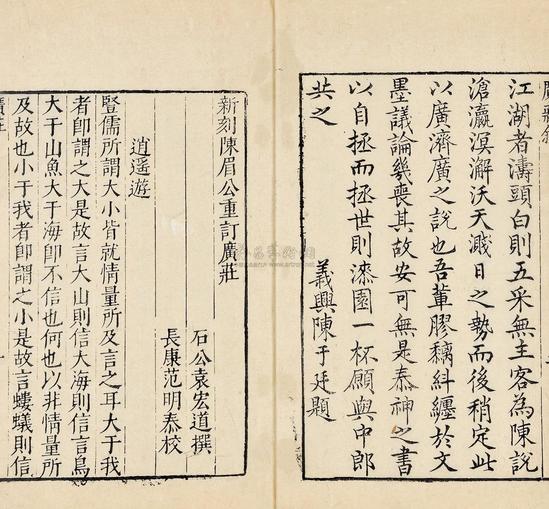 江湖者濤頭白則五采無主客為陳說
滄瀛溟澥沃天濺日之勢而後稍定此
以廣濟廣之說也吾輩膠糾纏於文
墨議論幾喪其故安可無是泰神之書
以自拯而拯世則漆園一杯願與中郎
共之
義興陳于廷題
新刻陳眉公重訂廣莊
石公袁宏道撰
長康范明泰校
逍遥遊
豎儒所謂大小皆就情量所及言之耳大于我
者即謂之大是故言大山則信大海則信言鳥
大于山魚大于海即不信也何也以非情量所
及故也小于我者即謂之小是故言螻蟻則信